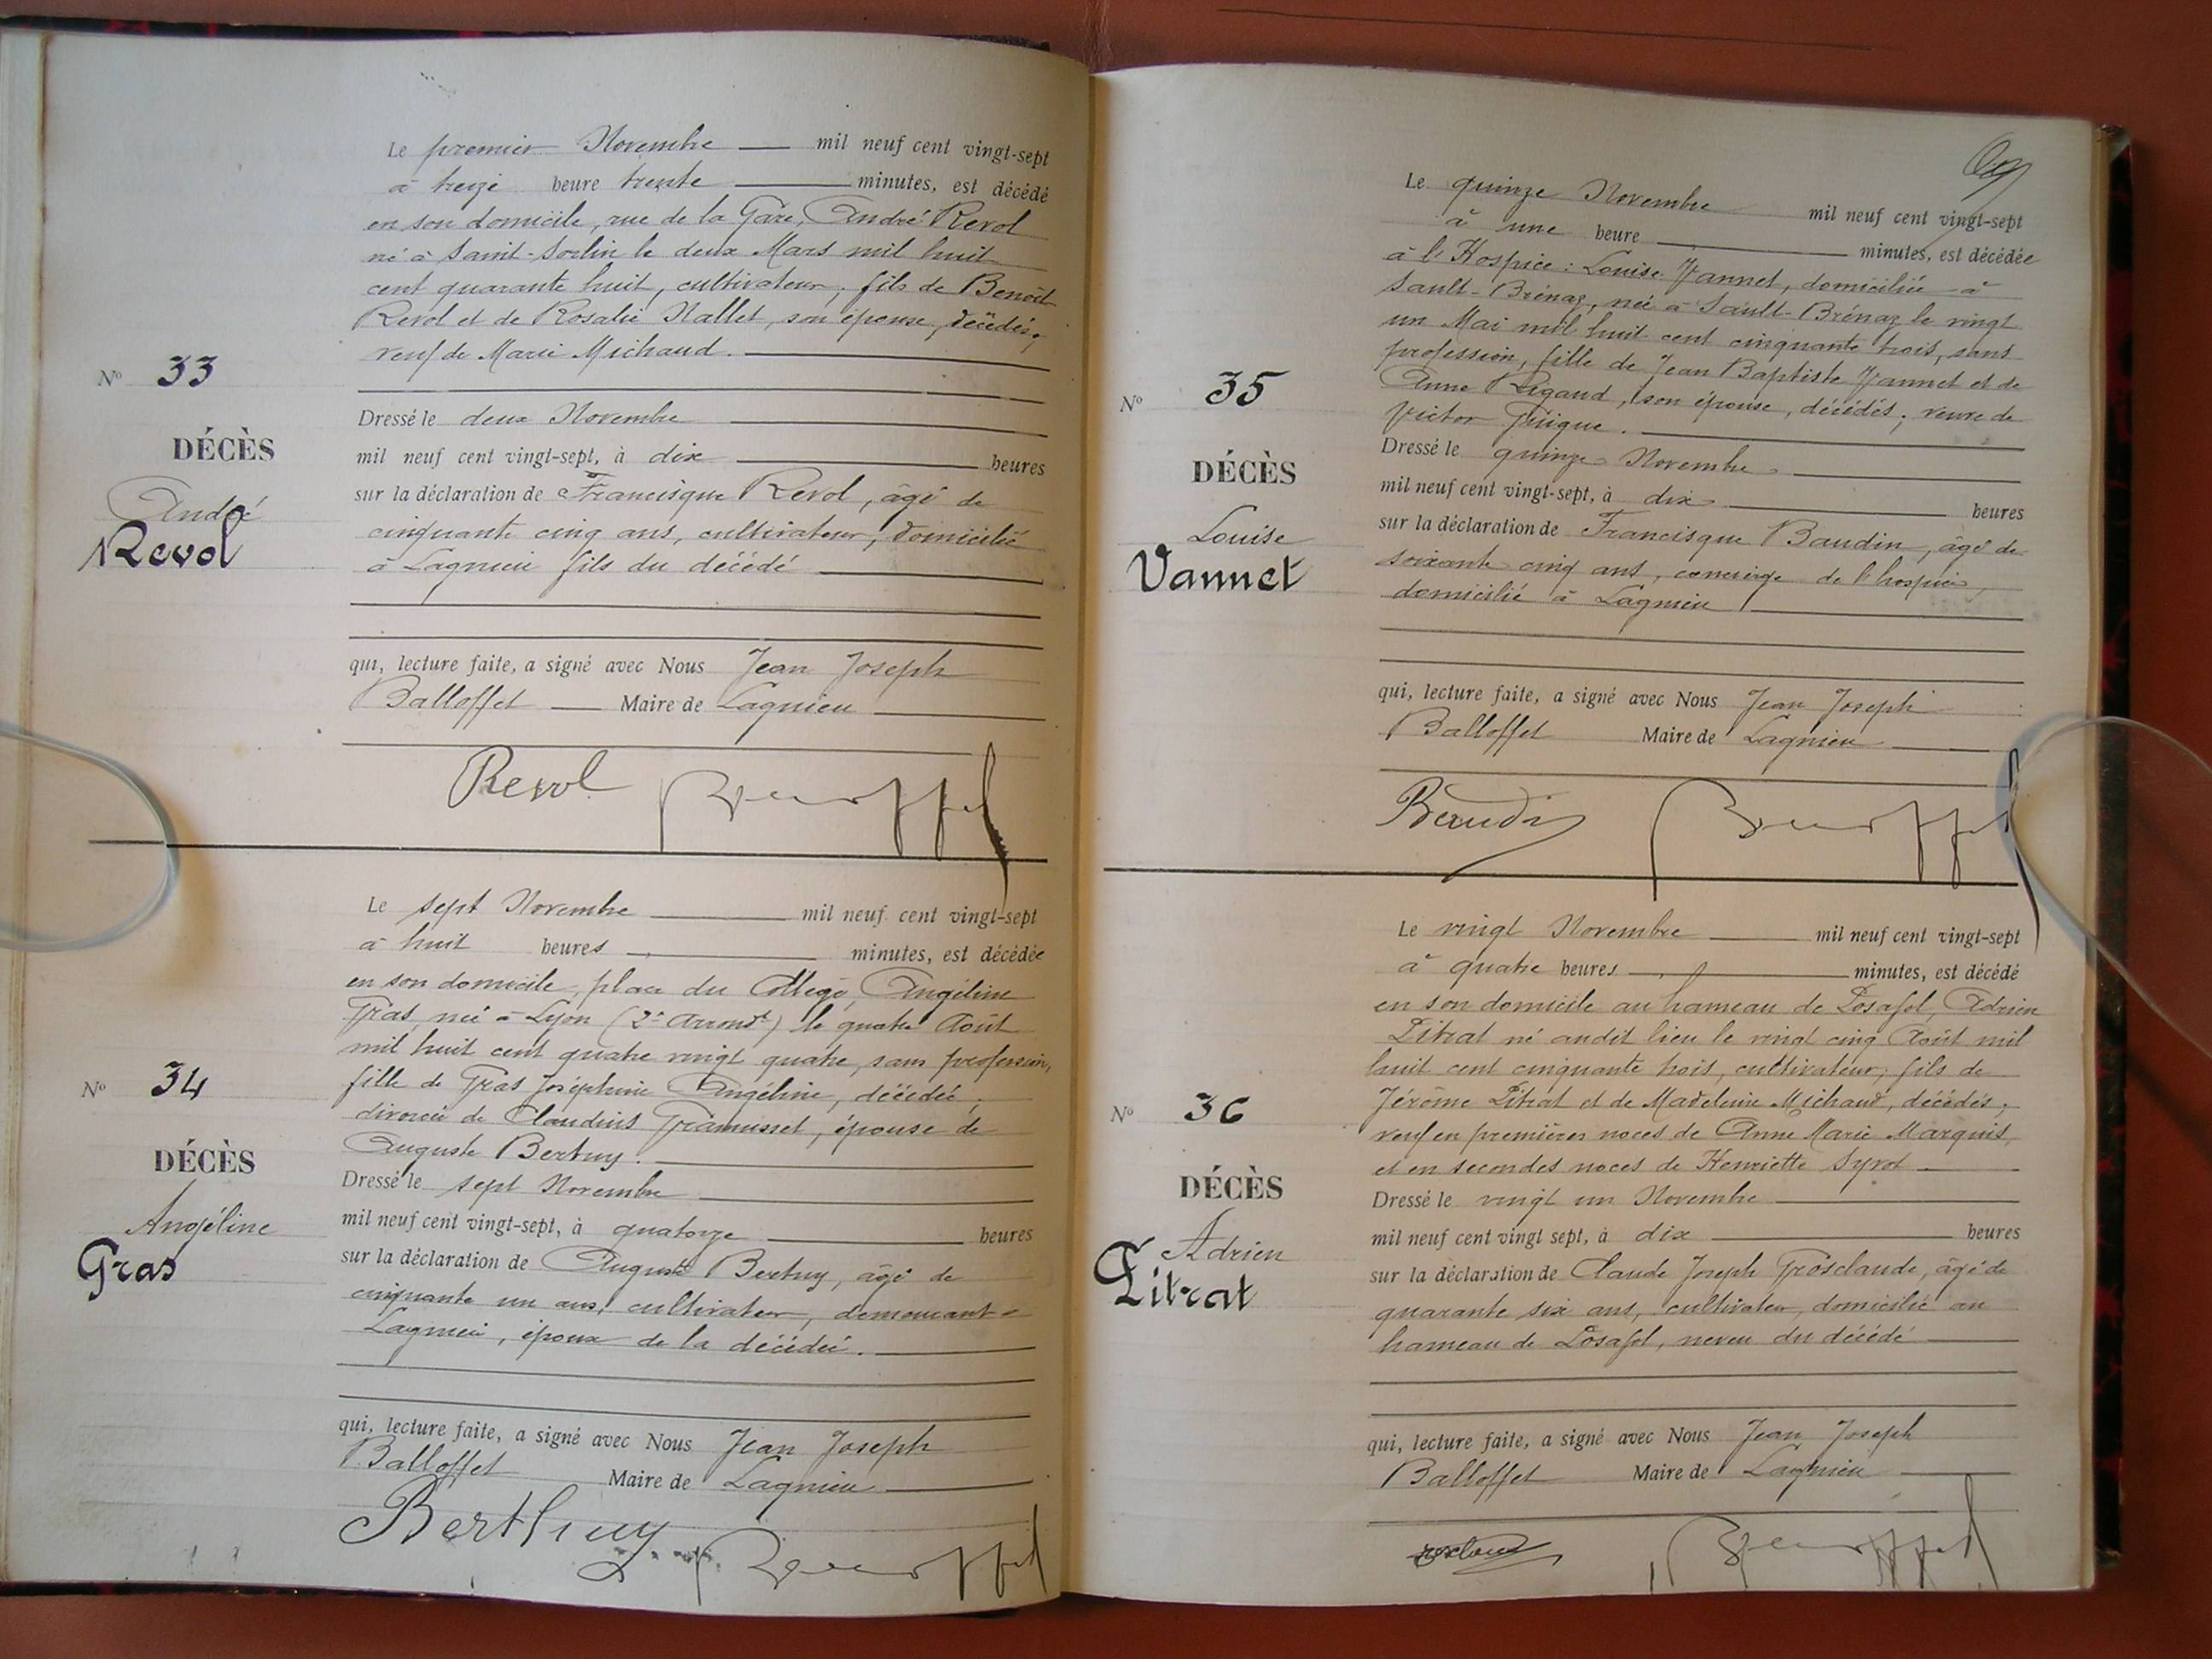 Le premier Novembre mil neuf cent vingt-sept
à treize heure trente minutes, est décédé
en son domicile, rue de la Gare, André Revol
né à Saint-Sorlin le deux Mars mil huit
cent quarante huit, cultivateur, fils de Benoît
Revol et de Rosalie Nallet, son épouse, décédés,
veuf de Marie Michaud.
No 33
DÉCÈS
André
Revol
Dressé le deux Novembre
mil neuf cent vingt-sept, à dix heures
sur la déclaration de Francisque Revol, âgé de
cinquante cinq ans, cultivateur, domicilié
à Lagnieu fils du décédé
qui, lecture faite, a signé avec Nous Jean Joseph
Balloffet Maire de Lagnieu
Revol Balloffet
Le sept Novembre mil neuf cent vingt-sept
à huit heures minutes, est décédée
en son domicile, place du Collège, Angéline
Gras, née à Lyon (2e Arrondt) le quatre Août
mil huit cent quatre vingt quatre, sans profession,
fille de Gras Joséphine Angéline, décédée,
divorcée de Claudius Gramusset, épouse de
Auguste Bertuy.
No 34
DÉCÈS
Angéline
Gras
Dressé le sept Novembre
mil neuf cent vingt-sept, à quatorze heures
sur la déclaration de Auguste Bertuy, âgé de
cinquante un ans, cultivateur, demeurant à
Lagnieu, époux de la décédée.
qui, lecture faite, a signé avec Nous Jean Joseph
Balloffet Maire de Lagnieu
Berthuy Balloffet
Le quinze Novembre mil neuf cent vingt-sept
à une heure minutes, est décédée
à l'Hospice : Louise Vannet, domiciliée à
Sault-Brénaz, née à Sault-Brénaz le vingt
un Mai mil huit cent cinquante trois, sans
profession, fille de Jean Baptiste Vannet et de
Anne Rigaud, son épouse, décédés, veuve de
Victor Guigue.
No 35
DÉCÈS
Louise
Vannet
Dressé le quinze Novembre
mil neuf cent vingt-sept, à dix heures
sur la déclaration de Francisque Baudin, âgé de
soixante cinq ans, concierge de l'hospice,
domicilié à Lagnieu
qui, lecture faite, a signé avec Nous Jean Joseph
Balloffet Maire de Lagnieu
Baudin Balloffet
Le vingt Novembre mil neuf cent vingt-sept
à quatre heures minutes, est décédé
en son domicile au hameau de Posafol, Adrien
Litrat né audit lieu le vingt cinq Août mil
huit cent cinquante trois, cultivateur, fils de
Jérôme Litrat et de Madeleine Michaud, décédés,
veuf en premières noces de Anne Marie Marquis,
et en secondes noces de Henriette Syrot
No 36
DÉCÈS
Adrien
Litrat
Dressé le vingt un Novembre
mil neuf cent vingt sept, à dix heures
sur la déclaration de Claude Joseph Grosclaude, âgé de
quarante six ans, cultivateur, domicilié au
hameau de Posafol, neveu du décédé
qui, lecture faite, a signé avec Nous Jean Joseph
Balloffet Maire de Lagnieu
Balloffet